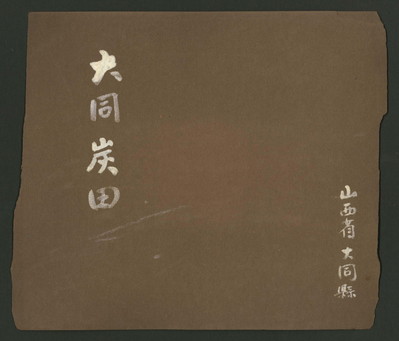 大同炭田
山西省大同縣